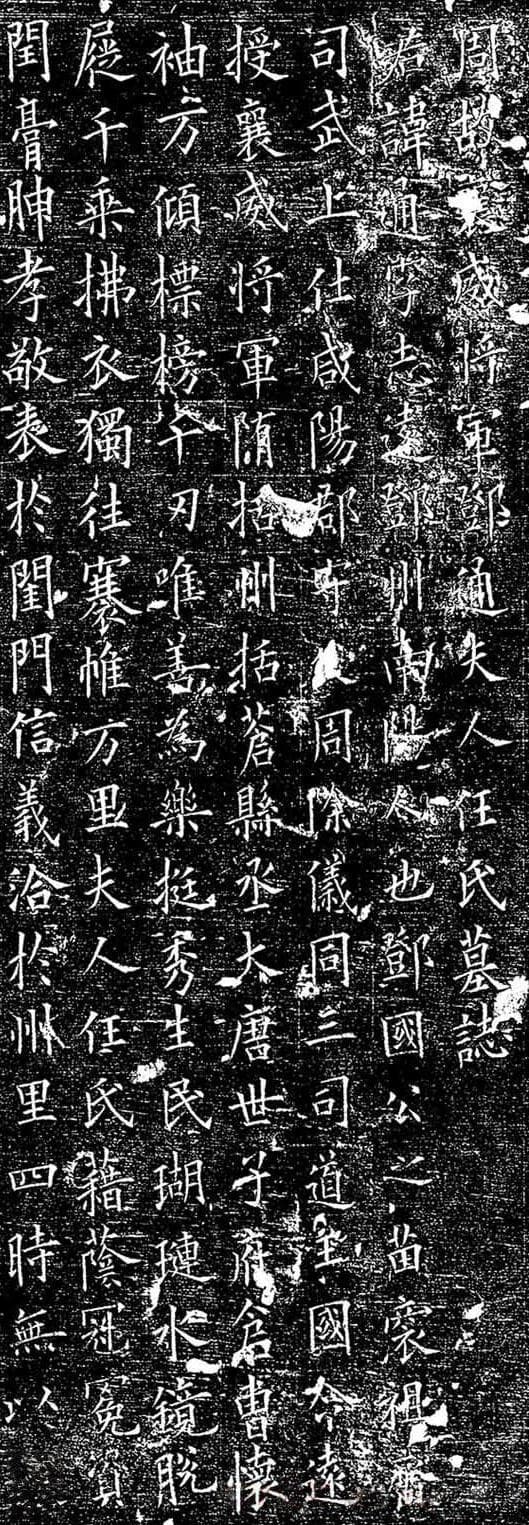 周故襄威將軍鄧通夫人任氏墓誌
君諱通字志遠鄧州南陽人也鄧國公之苗裔祖齊
司武上仕咸陽郡守後周除儀同三司道王國令遠
授襄威將軍隋括州括蒼縣丞大唐世子府倉曹懷
袖万傾標榜千刃唯善為樂挺秀生民瑚璉水鏡脫
屣千乘拂衣獨往褰帷万里夫人任氏藉蔭冠冕資
閏膏腴孝敬表於閨門信義洽於州里四時無以